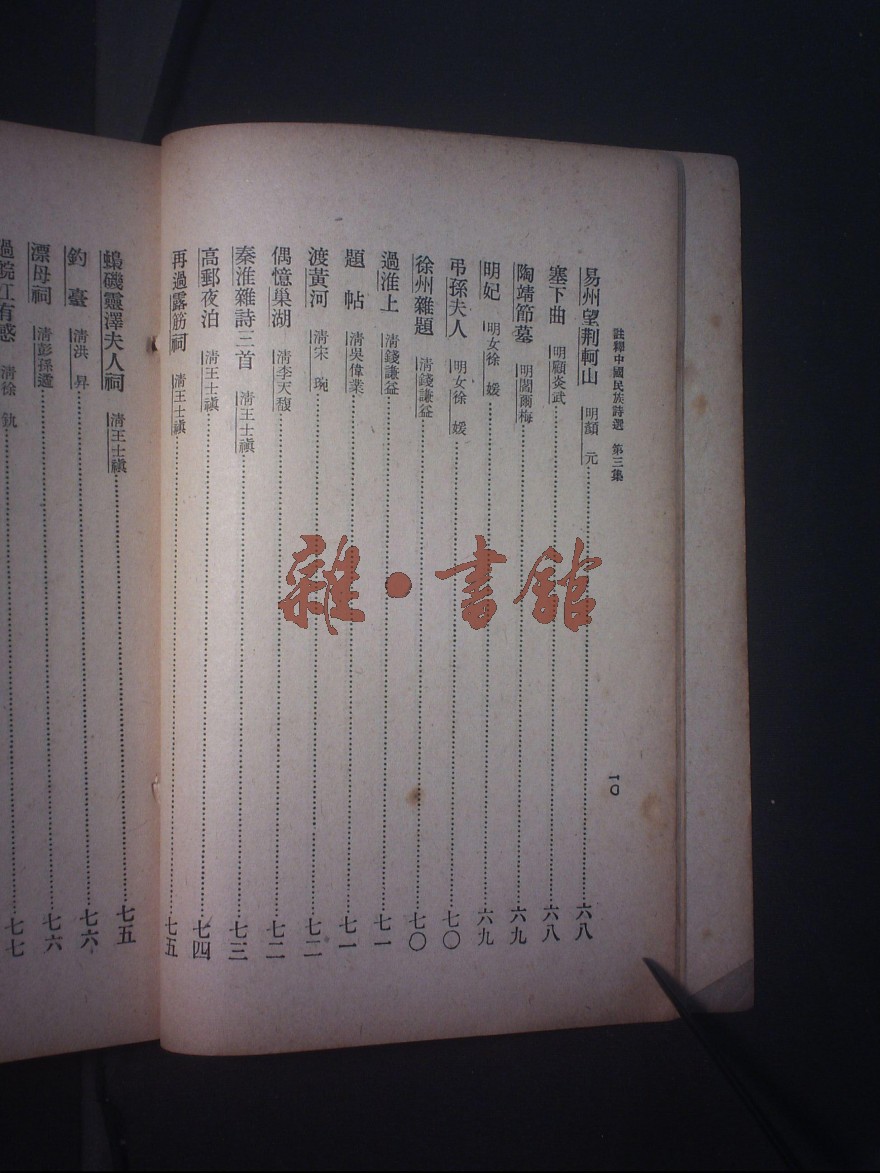 註釋中國民族詩選 第三集
一〇
易州望荆軻山 明顏 元 六八
塞下曲 明顧炎武 六八
陶靖節墓 明閻爾梅 六九
明妃 明女徐 媛 六九
弔孫夫人 明女徐 媛 七〇
徐州雜題 清錢謙益 七〇
過淮上 清錢謙益 七一
題 帖 清吳偉業 七一
渡黃河 清宋 琬 七二
偶憶巢湖 清李天馥 七二
秦淮雜詩三首 清王士禛 七三
高郵夜泊 清王士禛 七四
再過露筋祠 清王士禛 七五
蟂磯靈澤夫人祠 清王士禛 七五
釣 臺 清洪 昇 七六
漂母祠 清彭孫遹 七六
過皖江有感 清徐 釚 七七
雜·書館